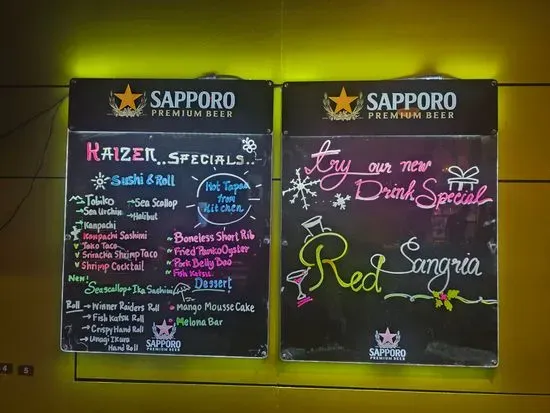 SAPPORO
PREMIUM BEER
KAIZEN..SPECIALS..
Sushi & Roll
Tobiko
Sea Urchin
Kanpachi
Sea Scallop
Halibut
Kanpachi Sashimi
Tako Taco
Sriracha Shrimp Taco
Shrimp Cocktail
New!
Seascallop & Ika Sashimi
Roll → Winner Raiders Roll
→ Fish Katsu Roll
→ Crispy Hand Roll
→ Unagi Ikura
Hand Roll
Hot Tapas
from
Kitchen
Boneless Short Rib
Fried Panko Oyster
Pork Belly Bao
Fish Katsu
Dessert
Mango Mousse Cake
Melona Bar
SAPPORO
PREMIUM BEER
SAPPORO
PREMIUM BEER
try our new
Drink Special
Red Sangria
SAPPORO
PREMIUM BEER
4 5